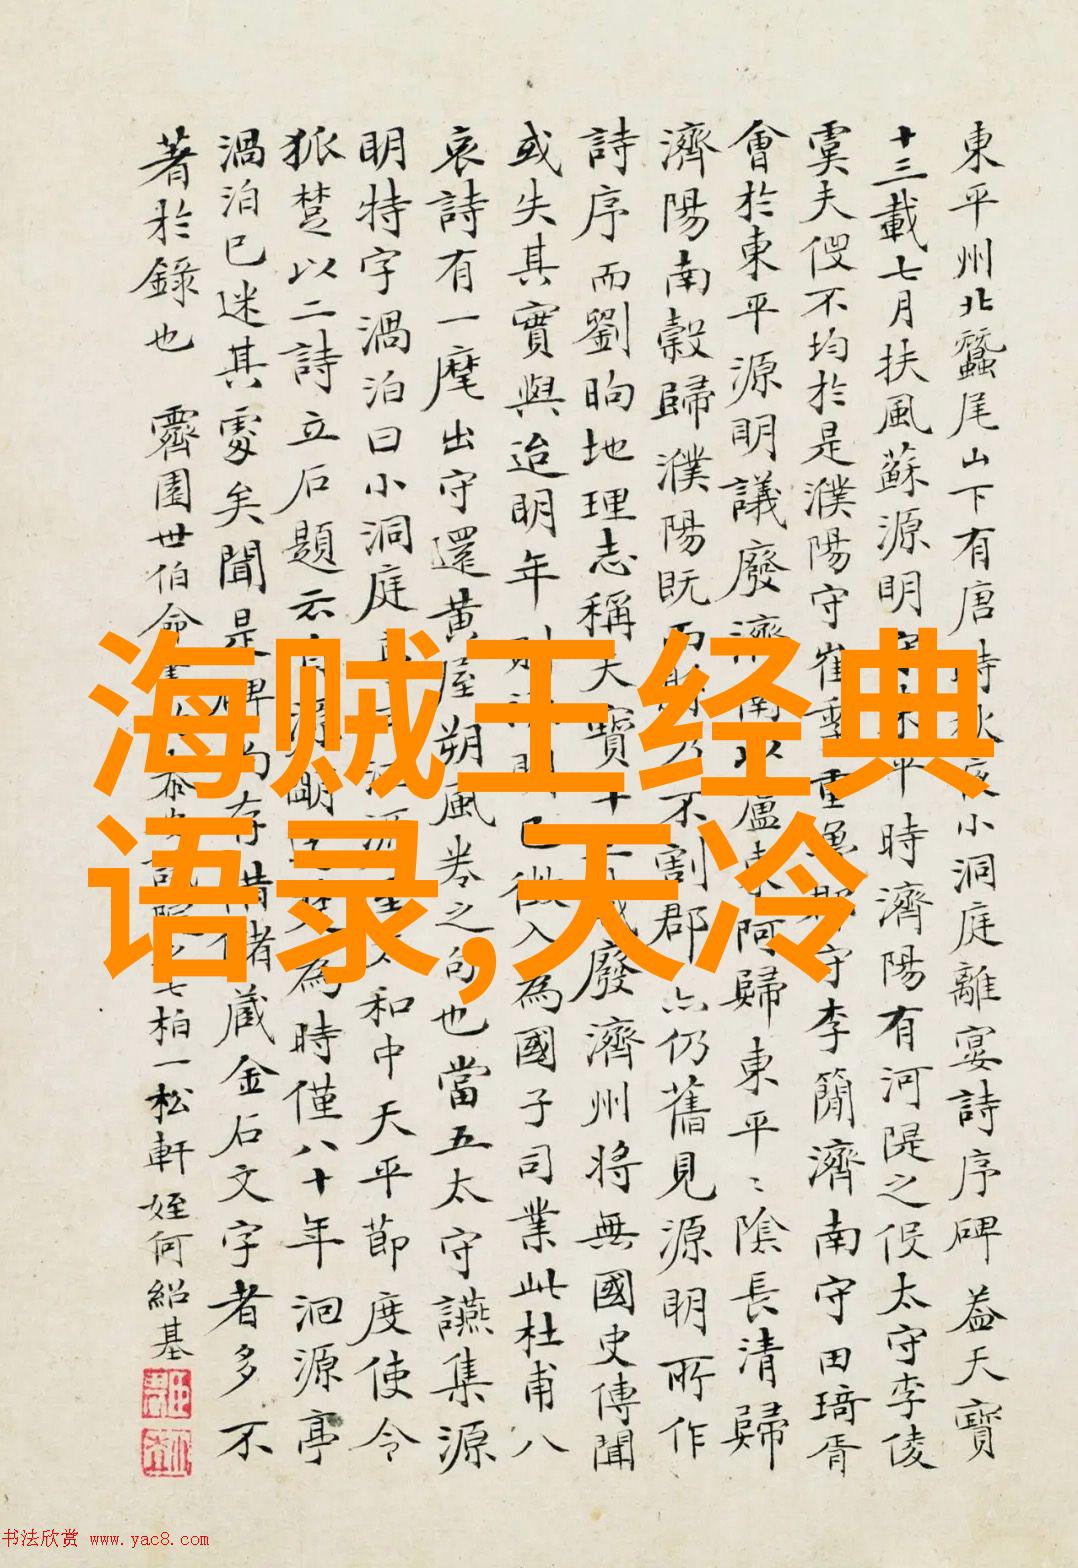 東平州北蠶尾山下有唐時秋夜小洞庭離宴詩序碑蓋天寶
十三載七月扶風蘇源明守東平時濟陽有河隄之役太守李倰
虞夫役不均於是濮陽守崔季重魯郡守李簡濟南守田琦胥
會於東平源明議廢濟南以盧東阿歸東平〻陰長清歸
濟陽南穀歸濮陽既而財乃不割郡亦仍舊見源明所作
詩序而劉昫地理志稱天寶十三載廢濟州將無國史傳聞
或失其實與迨明年則源明已徵入為國子司業此杜甫八
哀詩有一麾出守還黃屋朔風卷之句也當五太守讌集源
明特字渦泊曰小洞庭
和中天平節度使令
狐楚以二詩立石題云
為時僅八十年洄源亭
渦泊已迷其處矣聞是碑尚存惜儲藏金石文字者多不
著於錄也 霽園世伯命
七柏一松軒姪何紹基
海贼王经典
语录,天冷
书法欣赏 www.yac8.com